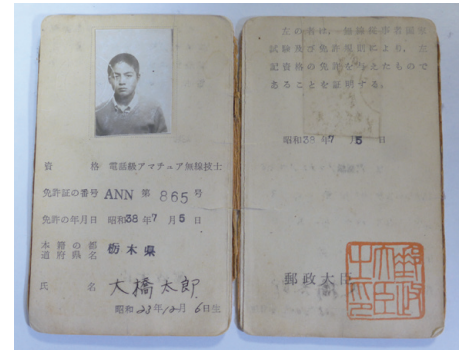 資 格 電話級アマチュア無線技士
免許証の番号 ANN 第 865 号
免許の年月日 昭和38年7月5日
本籍の都道府県名 栃木県
氏 名 大橋太郎
昭和23年12月6日生
左の者は、無線従事者国家
試験及び免許規則により、左
記資格の免許を与えたもので
あることを証明する。
昭和38年7月5日
郵政大臣
郵政大臣之印